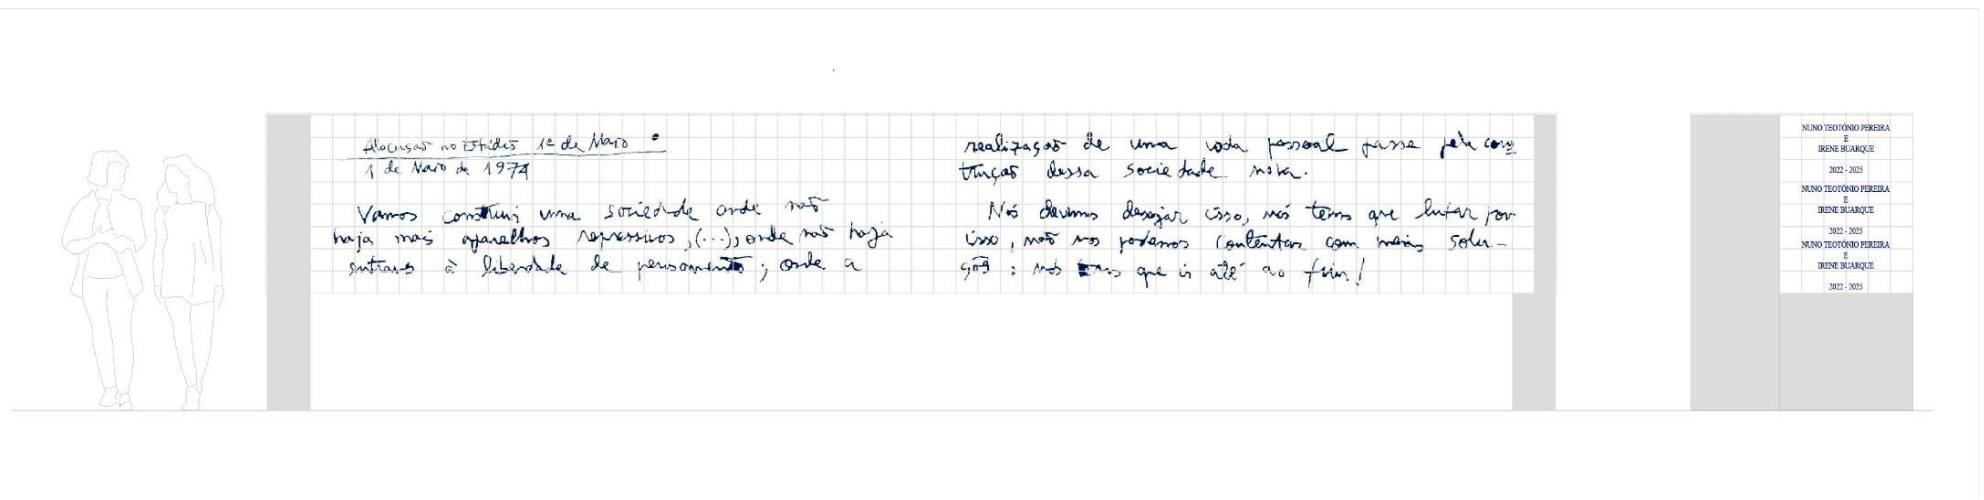 Alocução no Estádio 1º de Maio
1 de Maio de 1974
Vamos construir uma sociedade onde não
haja mais aparelhos repressivos, (...), onde não haja
entraves à liberdade de pensamento; onde a
realização de uma vida pessoal passe pela cons
trução dessa sociedade nova.
Nós devemos desejar isso, nós temos que lutar por
isso, não nos podemos contentar com meias solu-
ções: nós temos que ir até ao fim!
NUNO TEOTÓNIO PEREIRA
E
IRENE BUARQUE
2022 - 2025
NUNO TEOTÓNIO PEREIRA
E
IRENE BUARQUE
2022 - 2025
NUNO TEOTÓNIO PEREIRA
E
IRENE BUARQUE
2022 - 2025